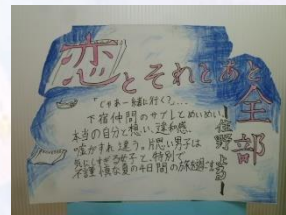 恋とそれとあと全部
住野よる
「じゃあ一緒に行く？」…
下宿仲間のサブレとめいめい。
本当の自分と想い、違和感。
嘘かすれ違う。片思い男子は
気にしすぎな女子と、特別で
不謹慎な夏の4日間の旅を過ごす